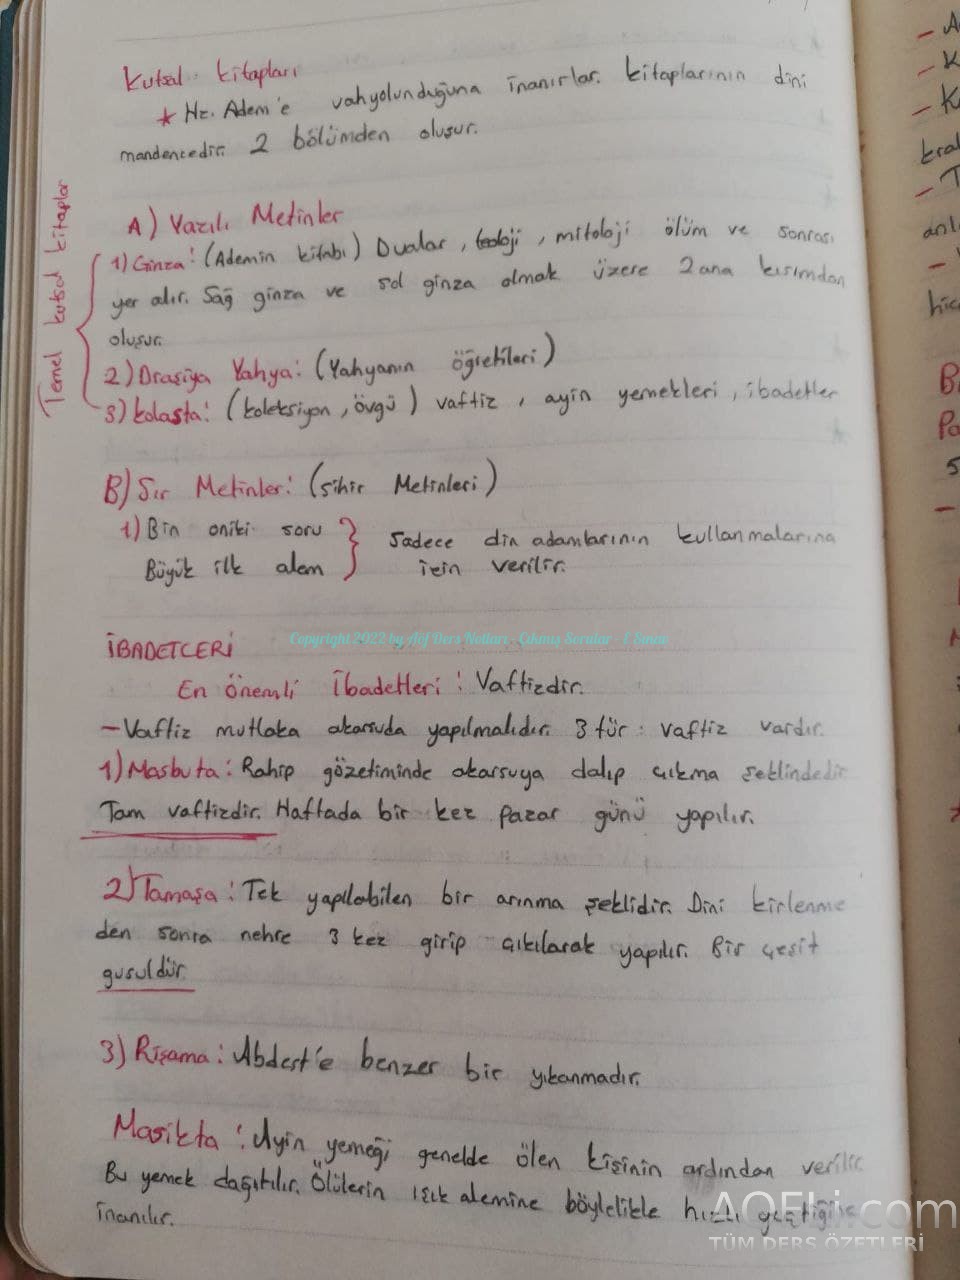 Kutsal kitapları
* Hz. Adem'e vahyolunduğuna inanırlar. Kitaplarının dini
mandencedir. 2 bölümden oluşur.
Temel kutsal kitaplar
A) Yazılı Metinler
1) Ginza: (Ademin kitabı) Dualar, teoloji, mitoloji ölüm ve sonrası
yer alır. Sağ ginza ve sol ginza olmak üzere 2 ana kısımdan
oluşur.
2) Draşiya Yahya: (Yahyanın öğretileri)
3) Kolasta: (koleksiyon, övgü) vaftiz, ayin yemekleri, ibadetler
B) Sır Metinler: (Sihir Metinleri)
1) Bin oniki soru
Büyük ilk alem
} Sadece din adamlarının kullanmalarına
için verilir.
İBADETLERİ
Copyright 2022 by Aöf Ders Notları - Çıkmış Sorular - E Sınav
En önemli İbadetleri: Vaftizdir.
- Vaftiz mutlaka akarsuda yapılmalıdır. 3 tür: vaftiz vardır.
1) Masbuta: Rahip gözetiminde akarsuya dalıp çıkma şeklindedir
Tam vaftizdir. Haftada bir kez pazar günü yapılır.
2) Tamaşa: Tek yapılabilen bir arınma şeklidir. Dini kirlenme
den sonra nehre 3 kez girip çıkılarak yapılır. Bir çeşit
gusuldür.
3) Rişama: Abdest'e benzer bir yıkanmadır.
Masikta: Ayin yemeği genelde ölen kişinin ardından verilir.
Bu yemek dağıtılır. Ölülerin ışık alemine böylelikle hızlı geçtiğine
inanılır.
AOFLi.com
TÜM DERS ÖZETLERİ